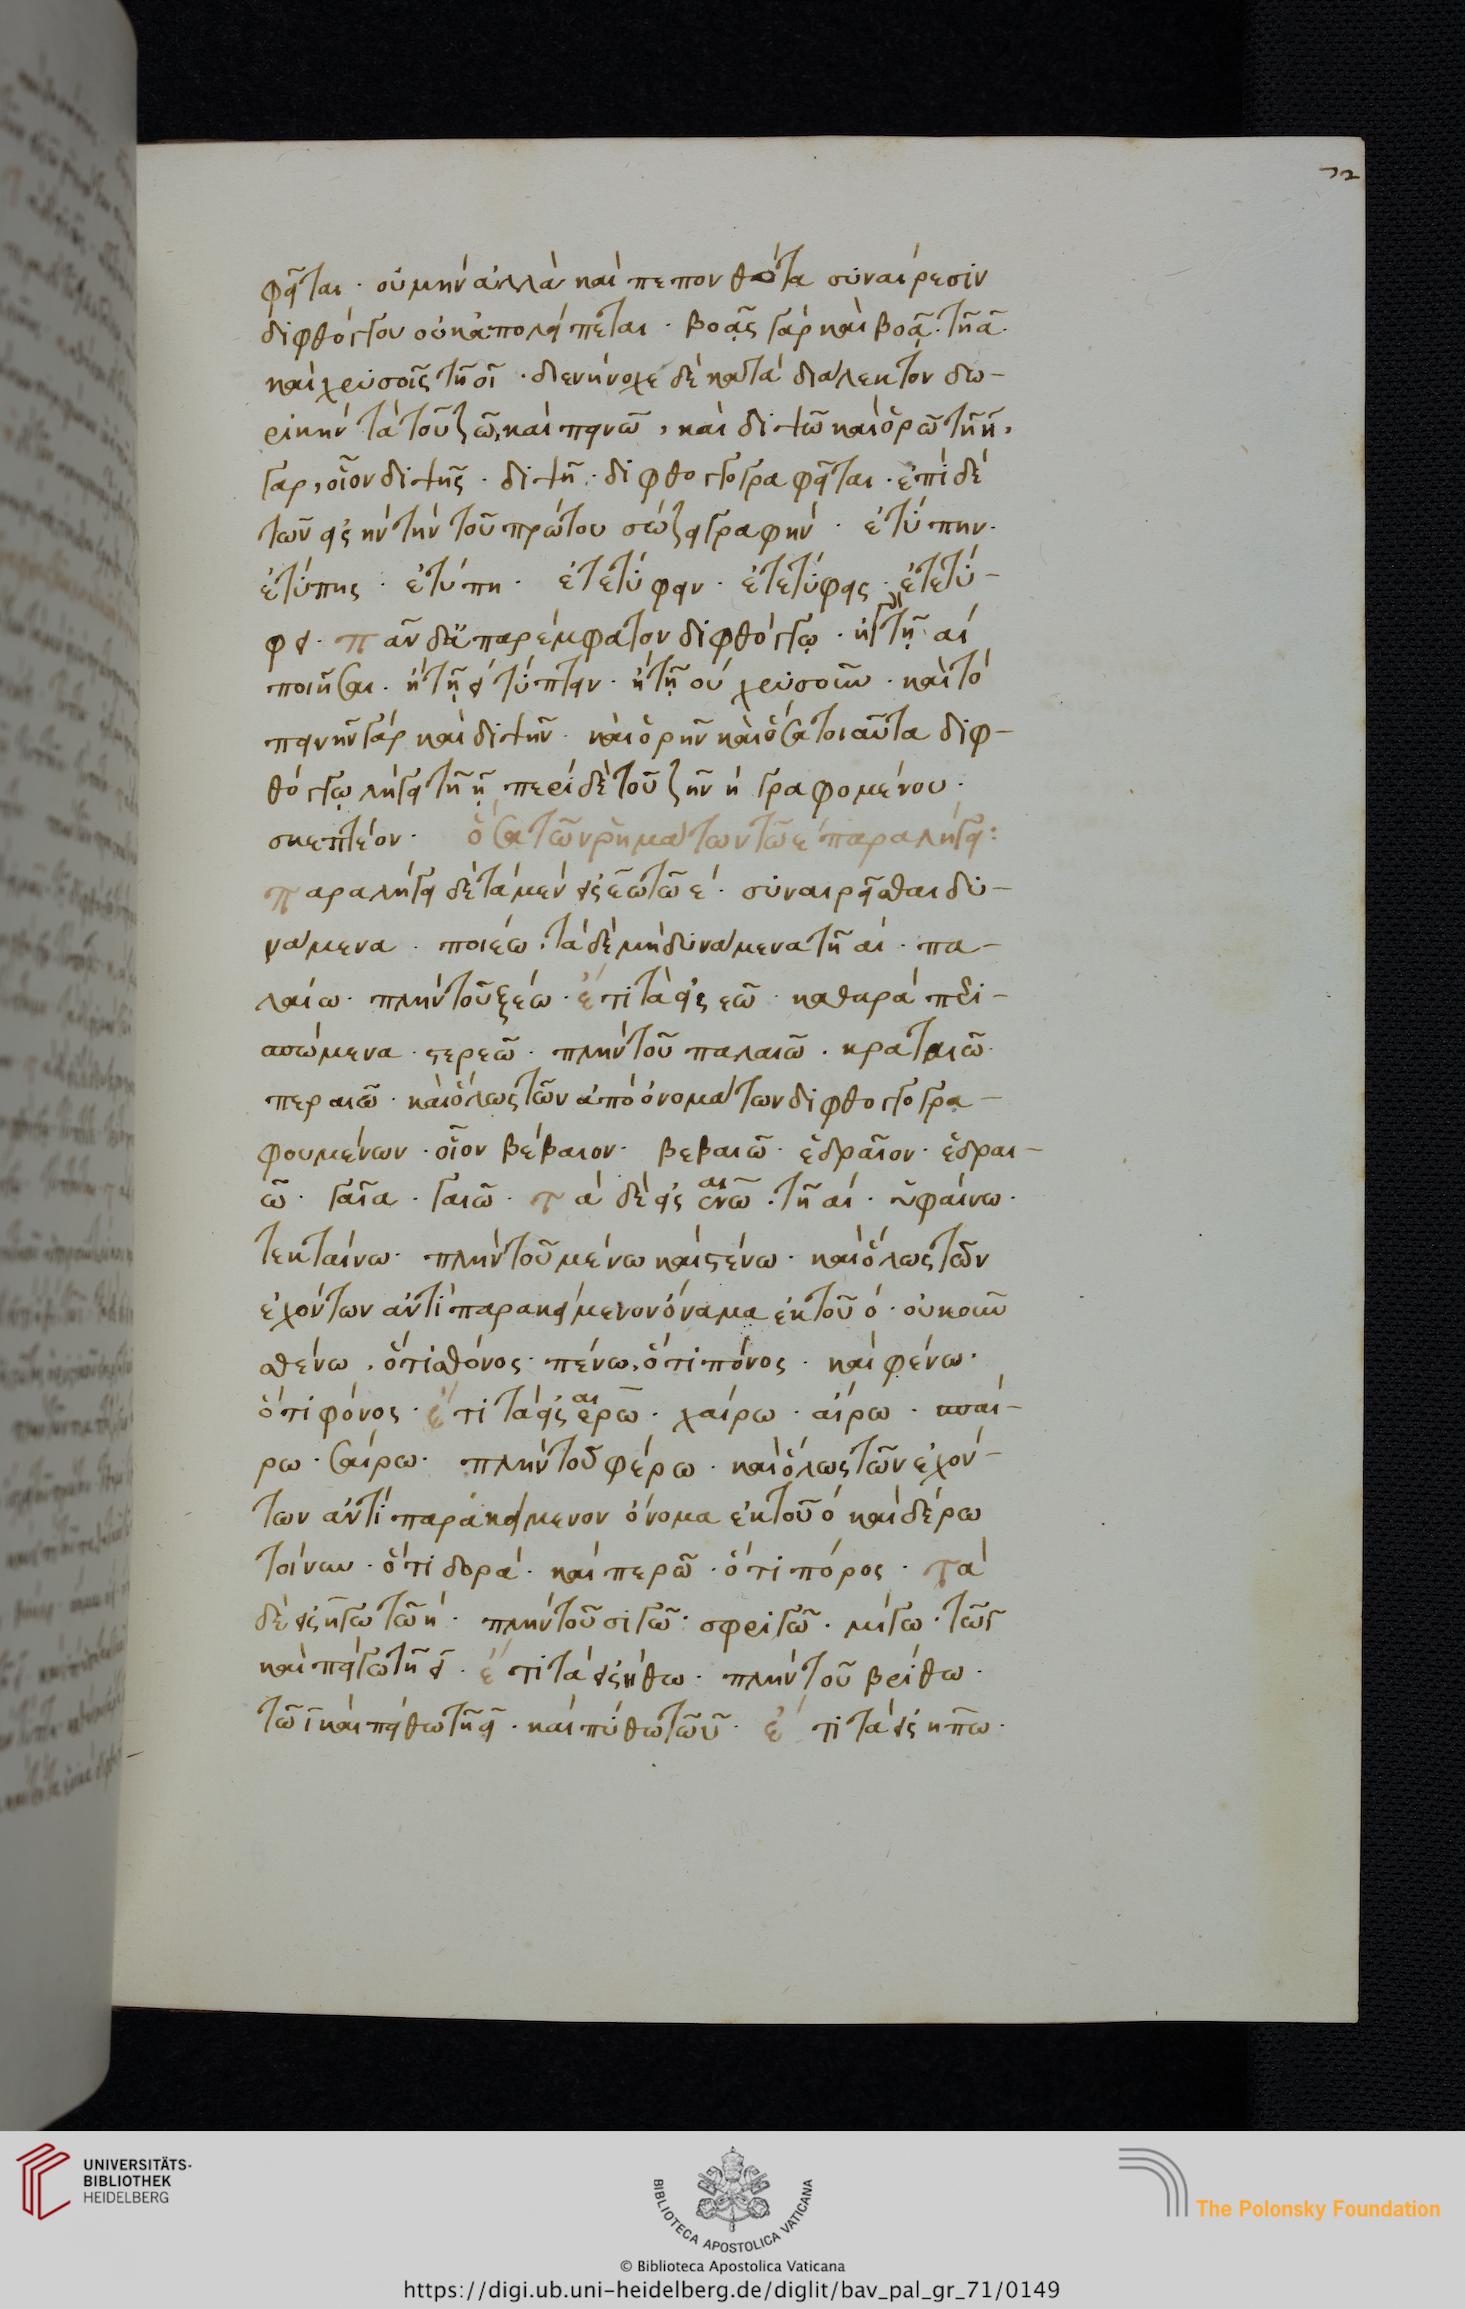 72
φεῖται · οὐ μὴν ἀλλὰ καὶ πεπονθότα συναίρεσιν
διφθόγγου οὐκ ἀπολείπεται · βοᾷς γὰρ καὶ βοᾷ · τῇ ᾳ ·
καὶ χρυσοῖς τῇ οι · διενήνοχε δὲ κατὰ διάλεκτον δω-
ρικὴν τὰ τοῦ ζῶ, καὶ πεινῶ, καὶ διψῶ καὶ ὁρῶ τῇ ῃ,
γὰρ, οἷον διψῇς · διψῇ · διφθογγογραφεῖται · ἐπὶ δὲ
τῶν εἰς ην τὴν τοῦ πρώτου σώζει γραφήν · ἐτύπην ·
ἐτύπης · ἐτύπη · ἐτετύφειν · ἐτετύφεις · ἐτετύ-
φει · πᾶν δὲ ἀπαρέμφατον διφθόγγῳ · ἢ γὰρ τῇ αι
ποιῆσαι · ἢ τῇ ει τύπτειν · ἢ τῇ ου χρυσοῦν · καὶ τὸ
πεινῇν γὰρ καὶ διψῇν · καὶ ὁρῇν καὶ ὅσα τοιαῦτα διφ-
θόγγῳ λήγει τῇ ῃ περὶ δὲ τοῦ ζῆν ἡ γραφομένου ·
σκεπτέον · ὅσα τῶν ῥημάτων τῷ ε παραλήγει :
παραλήγει δὲ τὰ μὲν εἰς έω τῷ ε · συναιρεῖσθαι δυ-
νάμενα · ποιέω · τὰ δὲ μὴ δυνάμενα τῇ αι · πα-
λαίω · πλὴν τοῦ ξέω · ἔτι τὰ εἰς εῶ · καθαρὰ περι-
σπώμενα · στερεῶ · πλὴν τοῦ παλαιῶ · κραταιῶ ·
περαιῶ · καὶ ὅλως τῶν ἀπὸ ὀνομάτων διφθογγογρα-
φουμένων · οἷον βέβαιον · βεβαιῶ · ἑδραῖον · ἑδραι-
ῶ · γαῖα · γαιῶ · τὰ δὲ εἰς αινω · τῇ αι · ὑφαίνω ·
τεκταίνω · πλὴν τοῦ μένω καὶ στένω · καὶ ὅλως τῶν
ἐχόντων ἀντιπαρακείμενον ὄναμα ἐκ τοῦ ο · οὐκοῦν
σθένω, ὅτι σθόνος · πένω, ὅτι πόνος · καὶ φένω ·
ὅτι φόνος · ἔτι τὰ εἰς αιρω · χαίρω · αἴρω · σπαί-
ρω · σαίρω · πλὴν τοῦ φέρω · καὶ ὅλως τῶν ἐχόν-
των ἀντιπαρακείμενον ὄνομα ἐκ τοῦ ο καὶ δέρω
τοίνυν · ὅτι δορά · καὶ περῶ · ὅτι πόρος · τὰ
δὲ εἰς ηγω τῷ η · πλὴν τοῦ σιγῶ · σφριγῶ · μίγω · τῷ ι
καὶ πείγω τῇ ει · ἔτι τὰ εἰς ήθω · πλὴν τοῦ βρίθω ·
τῷ ι καὶ πείθω τῇ ει · καὶ πύθω τῷ υ · ἔτι τὰ εἰς ηπω ·
UNIVERSITÄTS-
BIBLIOTHEK
HEIDELBERG
BIBLIOTECA APOSTOLICA VATICANA
The Polonsky Foundation
© Biblioteca Apostolica Vaticana
https://digi.ub.uni-heidelberg.de/diglit/bav_pal_gr_71/0149